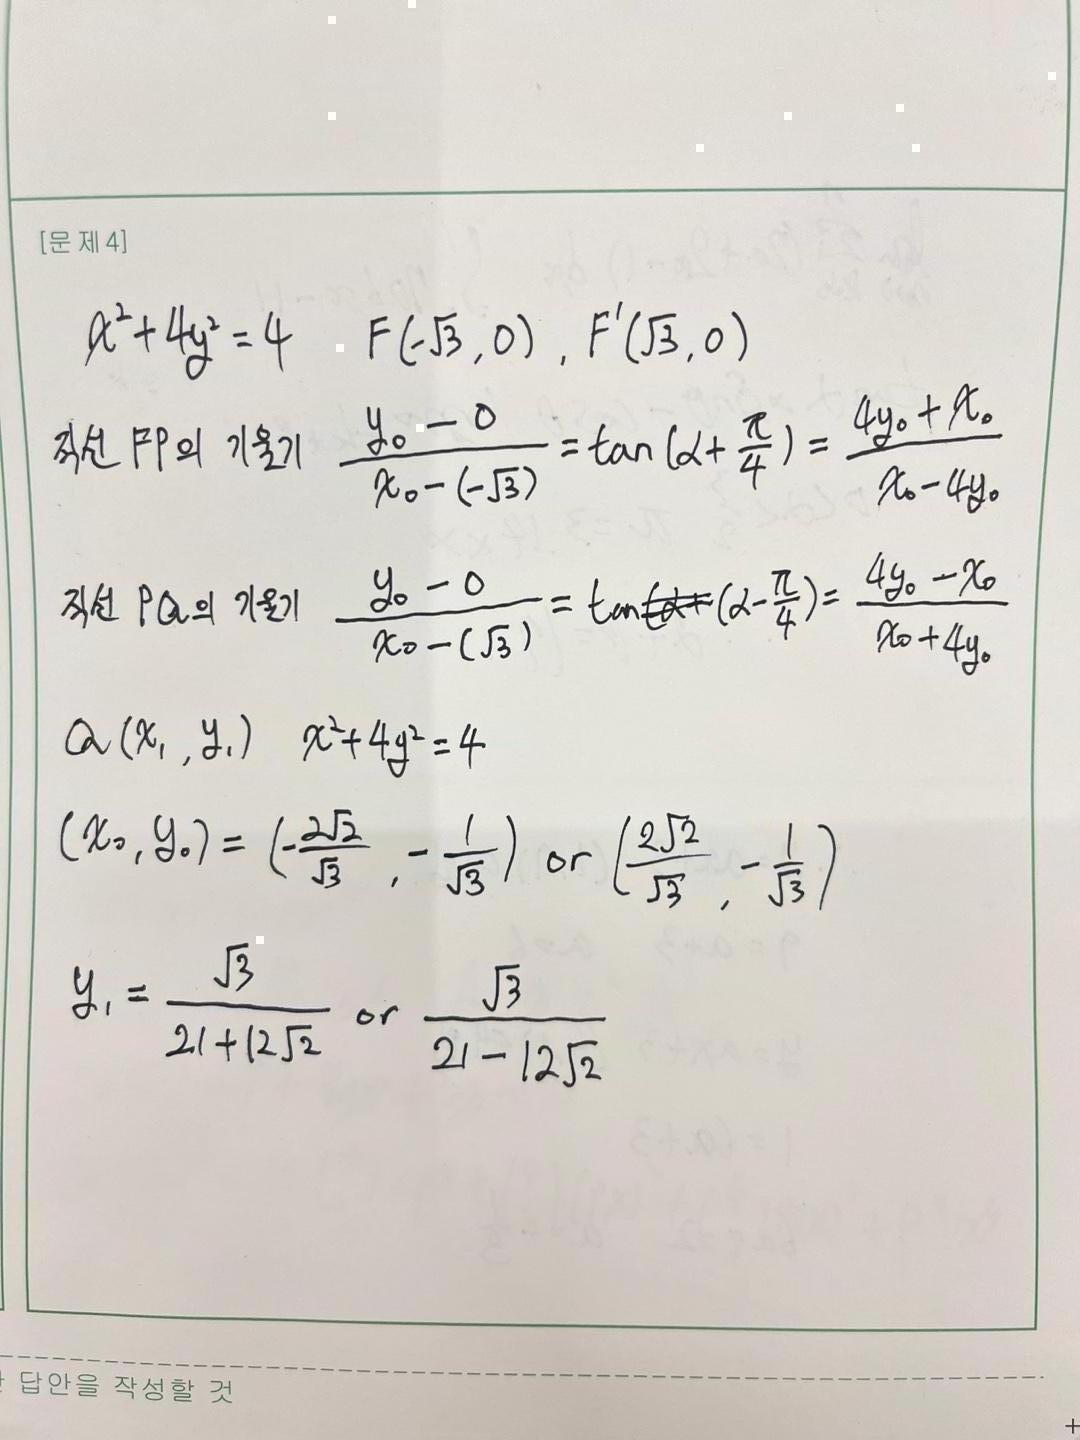 [문제4]
x²+4y²=4 F(-√3,0), F'(√3,0)
직선 FP의 기울기 (y₀-0)/(x₀-(-√3)) = tan(α+π/4) = (4y₀+x₀)/(x₀-4y₀)
직선 PQ의 기울기 (y₀-0)/(x₀-(√3)) = tan(α-π/4) = (4y₀-x₀)/(x₀+4y₀)
Q(x₁,y₁) x²+4y²=4
(x₀,y₀) = (-2√2/√3, -1/√3) or (2√2/√3, -1/√3)
y₁ = √3/(21+12√2) or √3/(21-12√2)
답안을 작성할 것